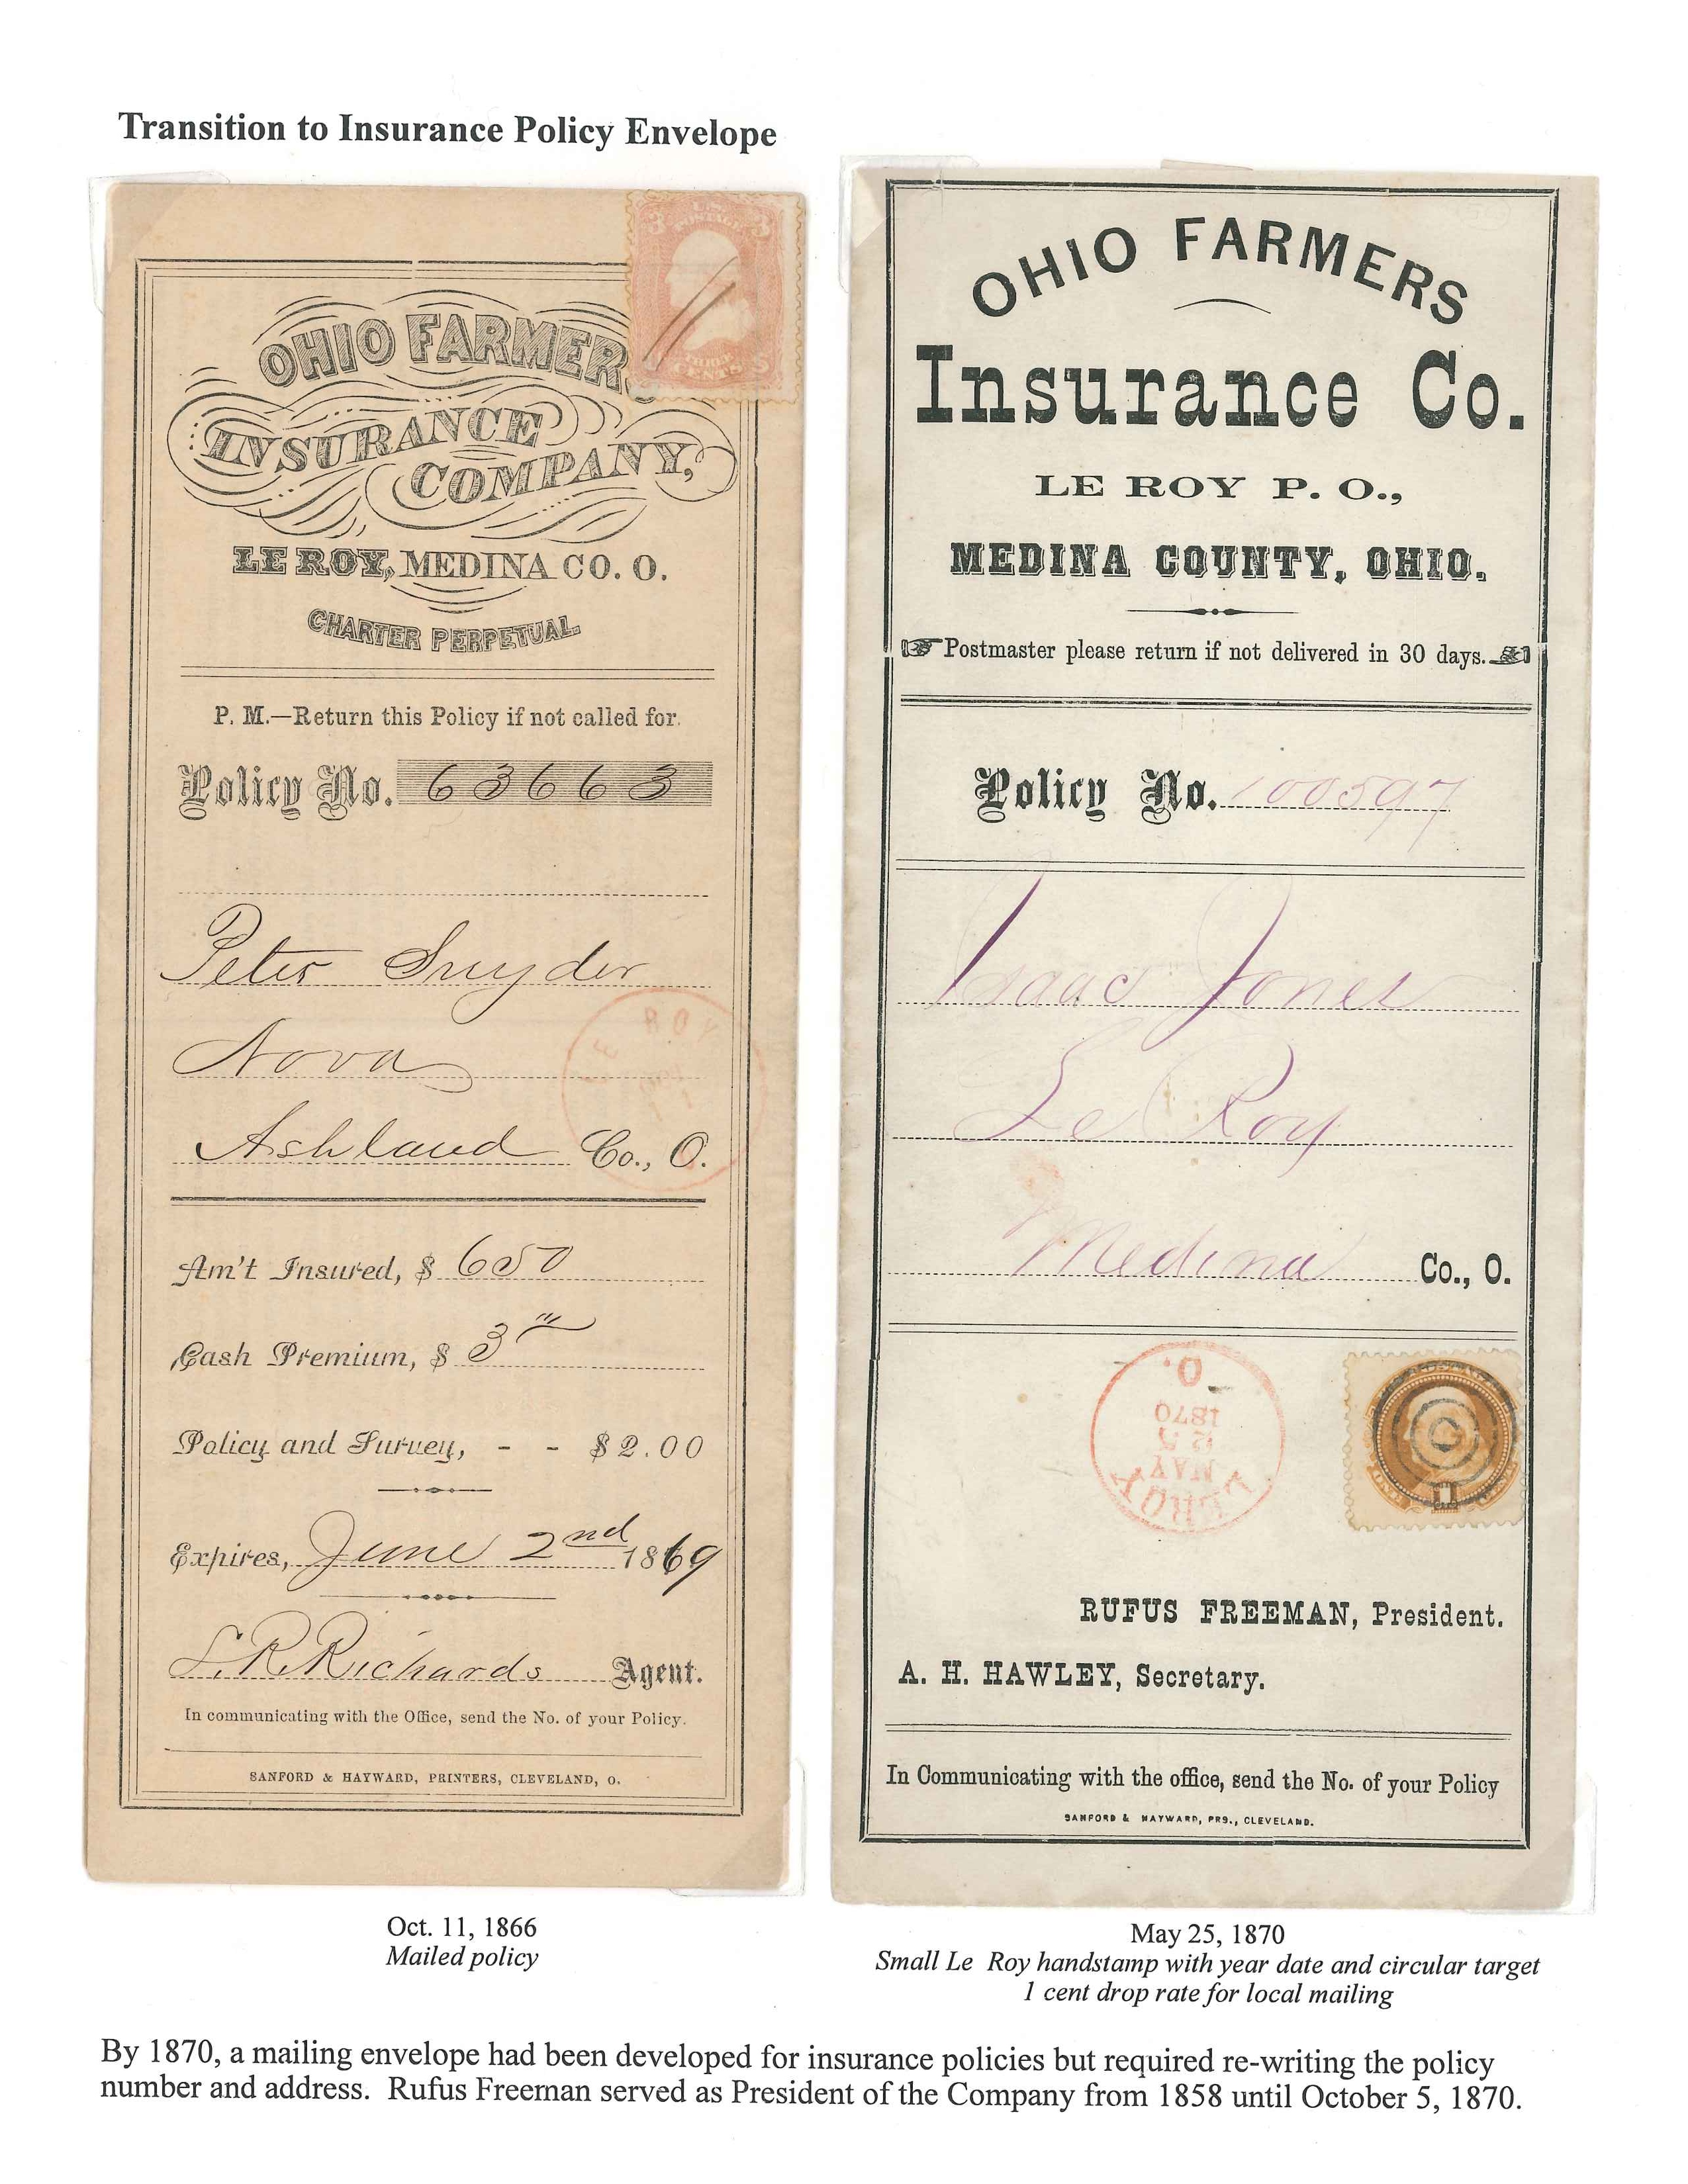 Transition to Insurance Policy Envelope
U.S. POSTAGE
3 3
THREE
CENTS
OHIO FARMERS
INSURANCE
COMPANY,
LE ROY, MEDINA CO. O.
CHARTER PERPETUAL.
P. M.—Return this Policy if not called for.
Policy No. 63663
Peter Snyder
Nova
LE ROY
Ashland Co., O.
Am't Insured, $ 650
Cash Premium, $ 3
Policy and Survey, - - $2.00
Expires, June 2nd 1869
S. R. Richards Agent.
In communicating with the Office, send the No. of your Policy.
SANFORD & HAYWARD, PRINTERS, CLEVELAND, O.
Oct. 11, 1866
Mailed policy
OHIO FARMERS
Insurance Co.
LE ROY P. O.,
MEDINA COUNTY, OHIO.
Postmaster please return if not delivered in 30 days.
Policy No. 100597
Isaac Jones
Le Roy
Medina Co., O.
LEROY
MAY
25
1870
O.
1
RUFUS FREEMAN, President.
A. H. HAWLEY, Secretary.
In Communicating with the office, send the No. of your Policy
SANFORD & HAYWARD, PRS., CLEVELAND.
May 25, 1870
Small Le Roy handstamp with year date and circular target
1 cent drop rate for local mailing
By 1870, a mailing envelope had been developed for insurance policies but required re-writing the policy
number and address. Rufus Freeman served as President of the Company from 1858 until October 5, 1870.